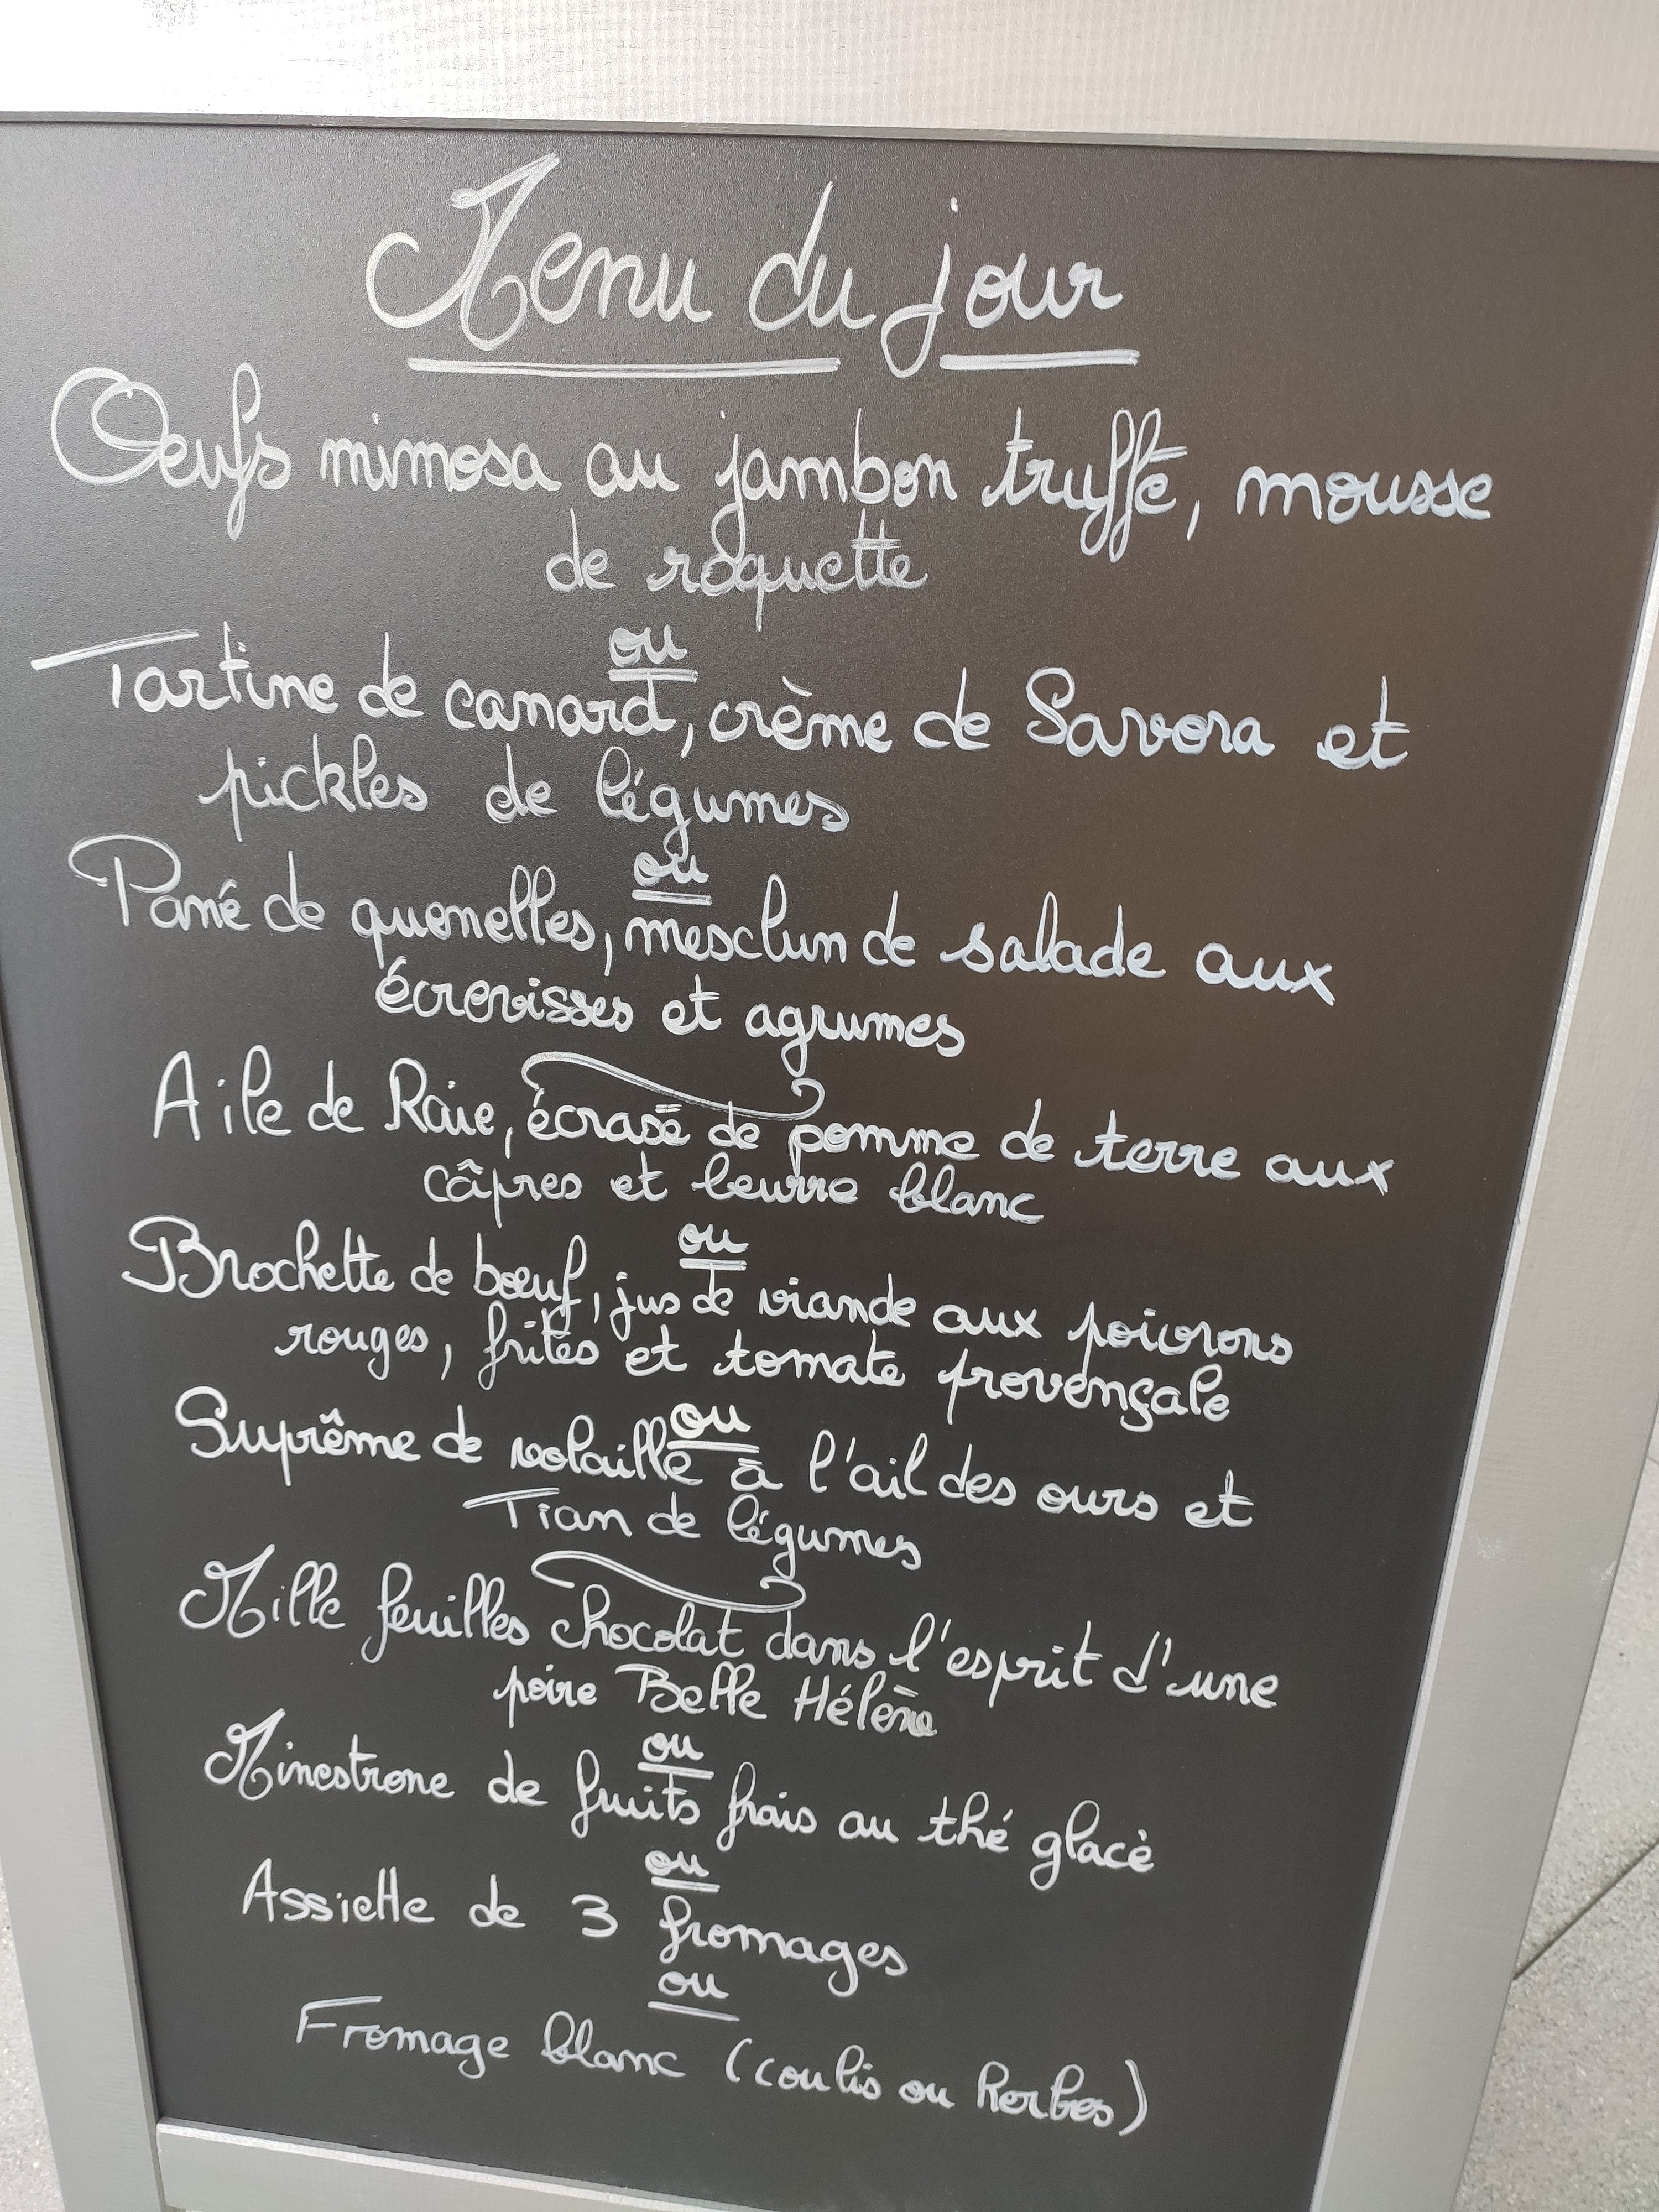 Menu du jour
Oeufs mimosa au jambon truffé, mousse
de roquette
ou
Tartine de canard, crème de Savora et
pickles de légumes
ou
Pané de quenelles, mesclun de salade aux
écrevisses et agrumes
Aile de Raie, écrasé de pomme de terre aux
câpres et beurre blanc
ou
Brochette de bœuf, jus de viande aux poivrons
rouges, frites et tomate provençale
ou
Suprême de volaille à l'ail des ours et
Tian de légumes
Mille feuilles chocolat dans l'esprit d'une
poire Belle Hélène
ou
Minestrone de fruits frais au thé glacé
ou
Assiette de 3 fromages
ou
Fromage blanc (coulis ou herbes)